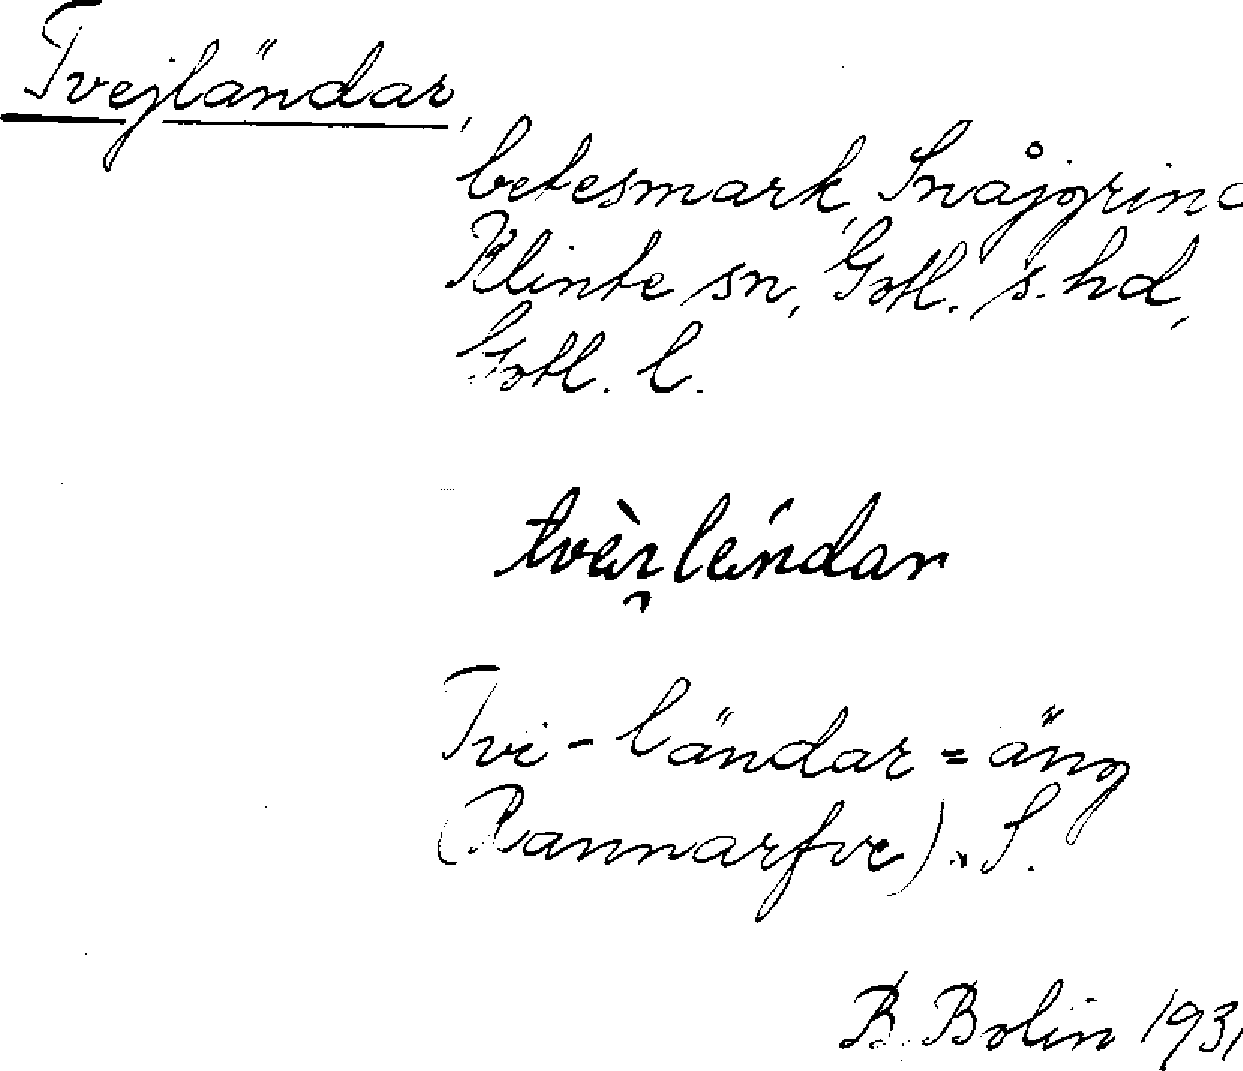 Tvejländar,
betesmark, Snåjgrind
Klinte sn, Gotl. s. hd,
Gotl. l.
Tvi-ländar = äng
(Rannarfve). S.
B. Bolin 1931